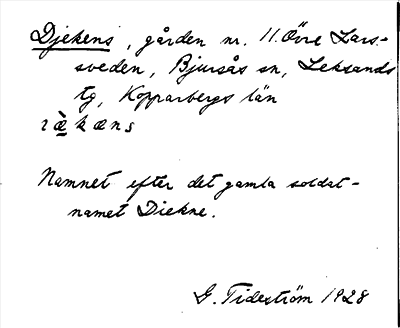 Djekens, gården nr. 11 Övre Lars-
sveden, Bjursås sn, Leksands
tg, Kopparbergs län
ræ̀kæns
Namnet efter det gamla soldat-
namet Diekne.
G. Tideström 1928